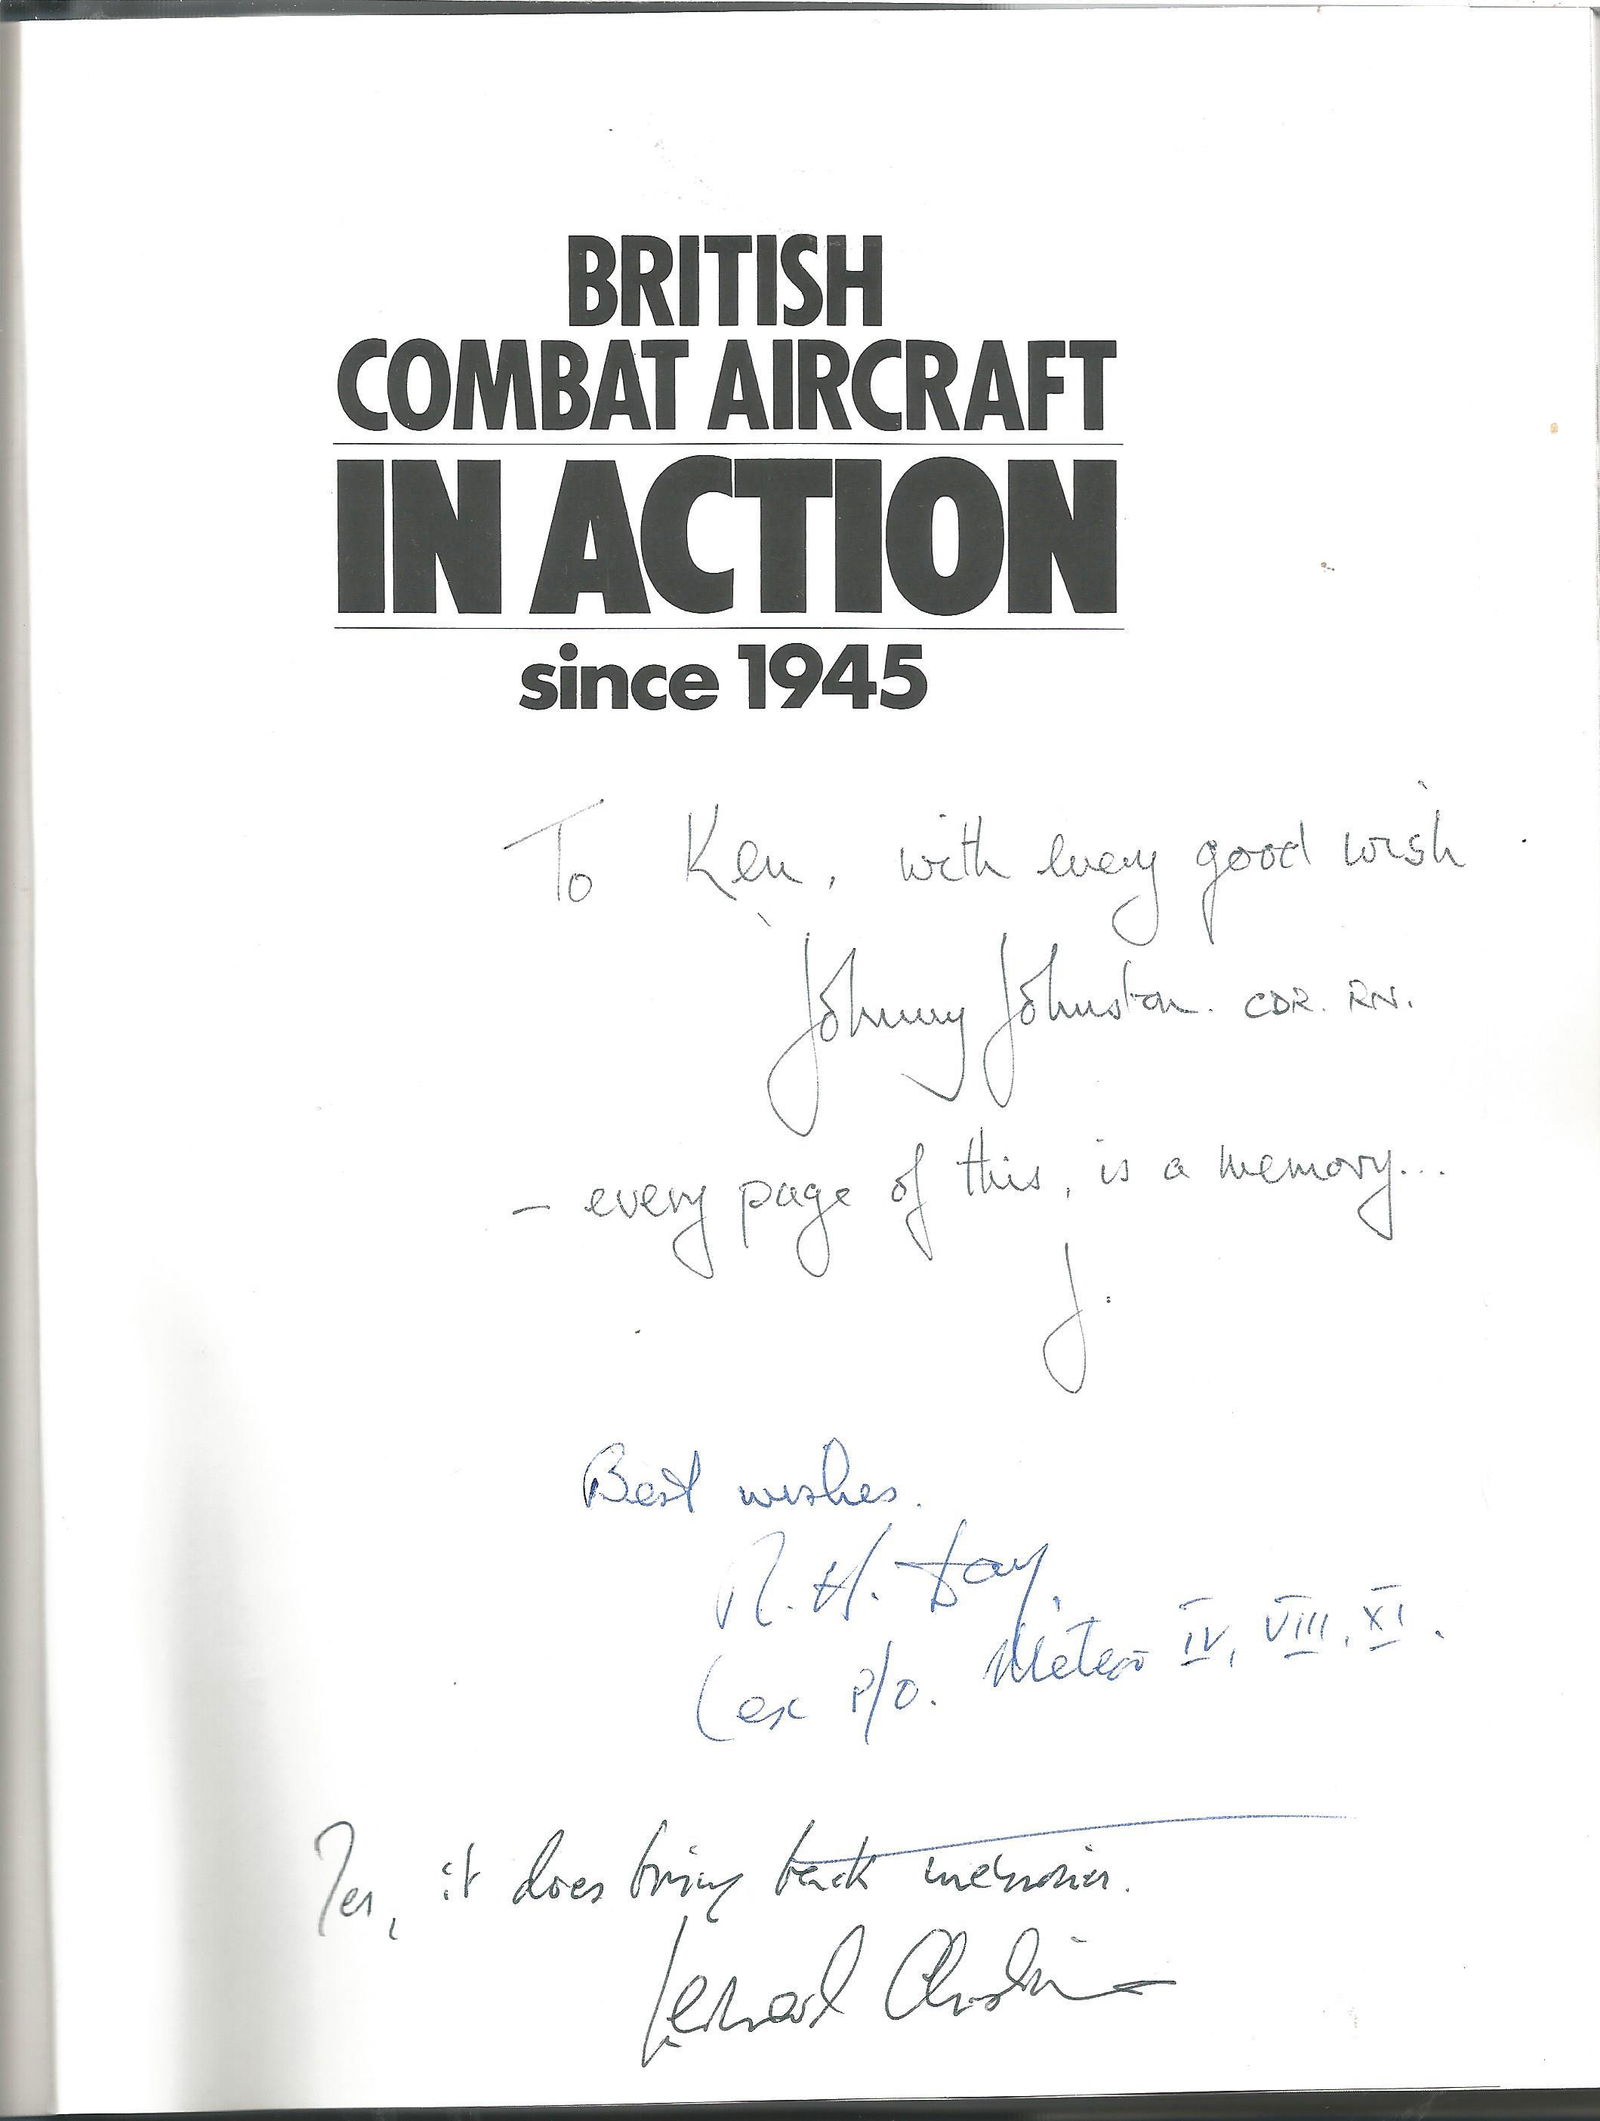 BRITISH
COMBAT AIRCRAFT
IN ACTION
since 1945
To Ken, with every good wish
Johnny Johnston. CDR. RN.
– every page of this, is a memory...
J.
Best wishes.
R. H. Day.
(ex P/O. Meteor IV, VIII, XI.
Yes, it does bring back memories.